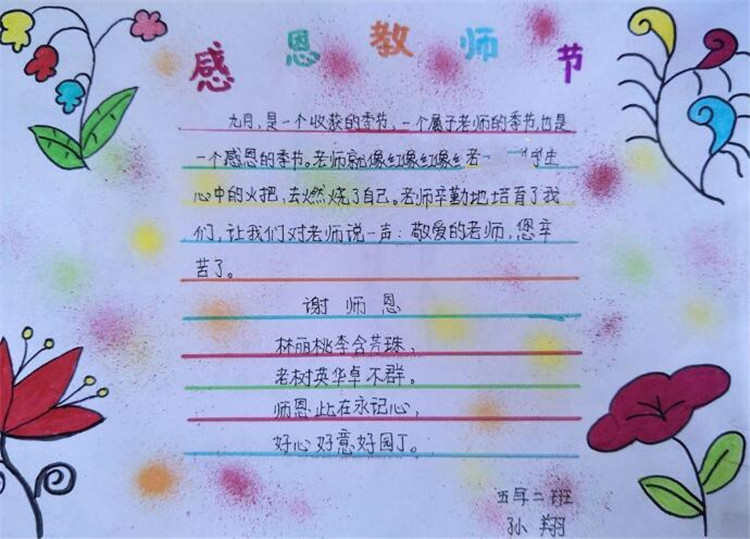 感恩教师节
九月,是一个收获的季节,一个属于老师的季节,也是
一个感恩的季节。老师就像红像红像丝老一 学生
心中的火把,去燃烧了自己。老师辛勤地培育了我
们,让我们对老师说一声:敬爱的老师,您辛
苦了。
谢师恩
林丽桃李含芳珠,
老树英华卓不群。
师恩此在永记心,
好心好意好园丁。
五年二班
孙翔